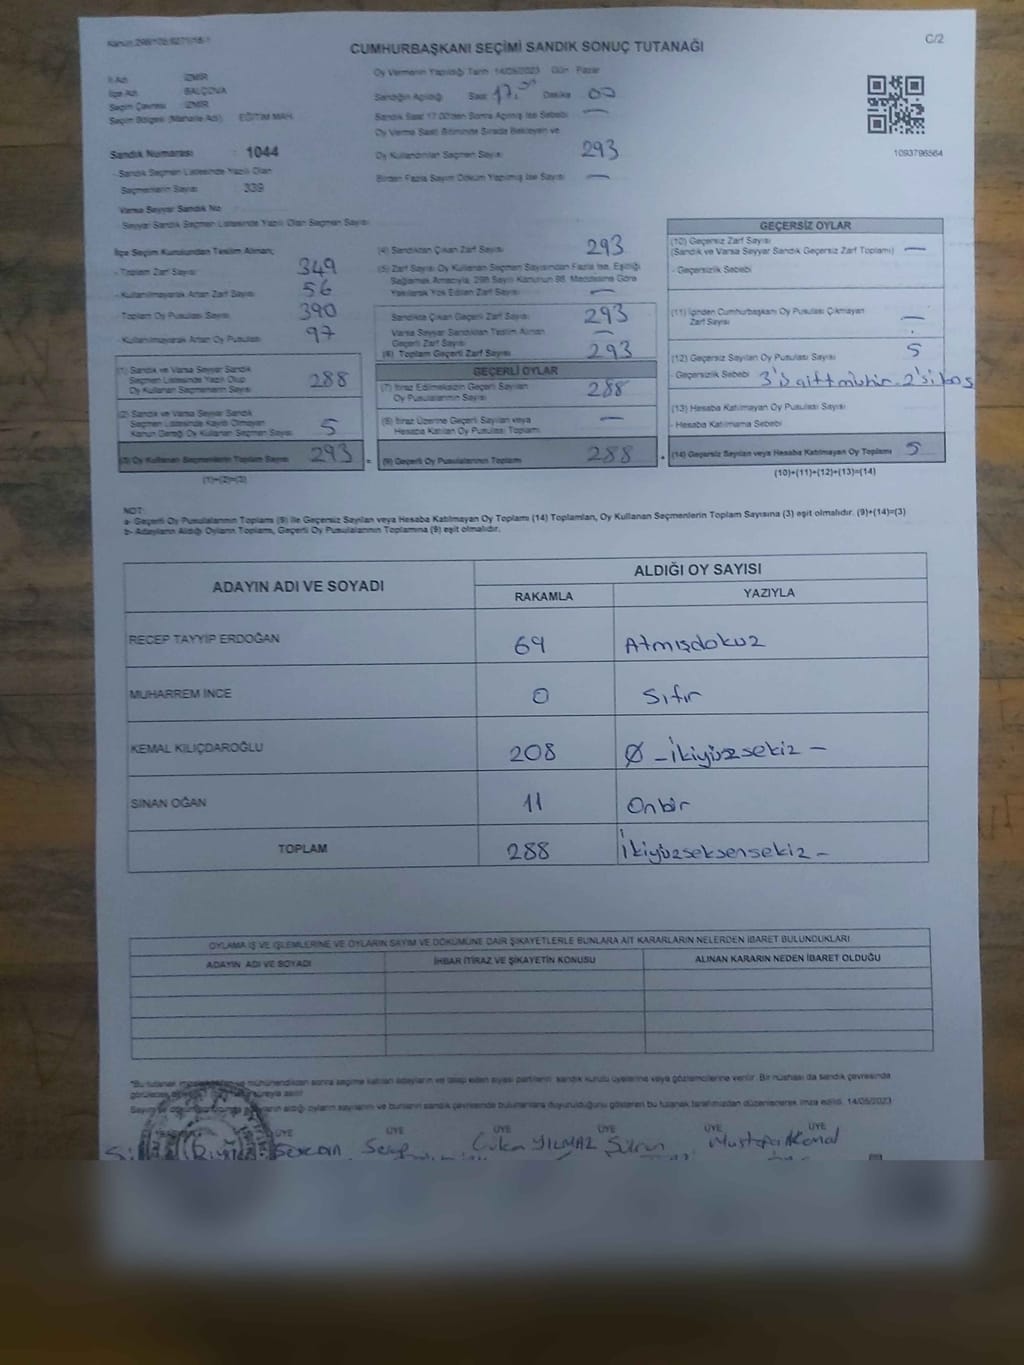 CUMHURBAŞKANI SEÇİMİ SANDIK SONUÇ TUTANAĞI
C/2
İl Adı İZMİR
İlçe Adı BALÇOVA
Seçim Çevresi İZMİR
Seçim Bölgesi (Mahalle Adı) EĞİTİM MAH.
Sandık Numarası : 1044
- Sandık Seçmen Listesinde Yazılı Olan
Seçmenlerin Sayısı 339
Varsa Seyyar Sandık No
Seyyar Sandık Seçmen Listesinde Yazılı Olan Seçmen Sayısı
Oy Vermenin Yapıldığı Tarih 14/05/2023 Gün Pazar
Sandığın Açıldığı Saat 17.00 Dakika 00
Sandık Saat 17.00'den Sonra Açılmış İse Sebebi —
Oy Verme Saati Bitiminde Sırada Bekleyen ve
Oy Kullandırılan Seçmen Sayısı 293
Birden Fazla Sayım Döküm Yapılmış İse Sayısı —
1093796564
İlçe Seçim Kurulundan Teslim Alınan;
- Toplam Zarf Sayısı 349
- Kullanılmayarak Artan Zarf Sayısı 56
- Toplam Oy Pusulası Sayısı 390
- Kullanılmayarak Artan Oy Pusulası 97
(1) Sandık ve Varsa Seyyar Sandık
Seçmen Listesinde Yazılı Olup
Oy Kullanan Seçmenlerin Sayısı 288
(2) Sandık ve Varsa Seyyar Sandık
Seçmen Listesinde Kayıtlı Olmayan
Kanun Gereği Oy Kullanan Seçmen Sayısı 5
(3) Oy Kullanan Seçmenlerin Toplam Sayısı 293
(1)+(2)=(3)
(4) Sandıktan Çıkan Zarf Sayısı 293
(5) Zarf Sayısı Oy Kullanan Seçmen Sayısından Fazla İse, Eşitliği
Sağlamak Amacıyla, 298 Sayılı Kanunun 98. Maddesine Göre
Yakılarak Yok Edilen Zarf Sayısı —
Sandıkta Çıkan Geçerli Zarf Sayısı 293
Varsa Seyyar Sandıktan Teslim Alınan
Geçerli Zarf Sayısı —
(6) Toplam Geçerli Zarf Sayısı 293
GEÇERLİ OYLAR
(7) İtiraz Edilmeksizin Geçerli Sayılan
Oy Pusulalarının Sayısı 288
(8) İtiraz Üzerine Geçerli Sayılan veya
Hesaba Katılan Oy Pusulası Toplamı —
= (9) Geçerli Oy Pusulalarının Toplamı 288
GEÇERSİZ OYLAR
(10) Geçersiz Zarf Sayısı
(Sandık ve Varsa Seyyar Sandık Geçersiz Zarf Toplamı) —
- Geçersizlik Sebebi
(11) İçinden Cumhurbaşkanı Oy Pusulası Çıkmayan
Zarf Sayısı —
(12) Geçersiz Sayılan Oy Pusulası Sayısı 5
- Geçersizlik Sebebi 3'ü çift mühür. 2'si boş
(13) Hesaba Katılmayan Oy Pusulası Sayısı
- Hesaba Katılmama Sebebi
+ (14) Geçersiz Sayılan veya Hesaba Katılmayan Oy Toplamı 5
(10)+(11)+(12)+(13)=(14)
NOT:
a- Geçerli Oy Pusulalarının Toplamı (9) ile Geçersiz Sayılan veya Hesaba Katılmayan Oy Toplamı (14) Toplamları, Oy Kullanan Seçmenlerin Toplam Sayısına (3) eşit olmalıdır. (9)+(14)=(3)
b- Adayların Aldığı Oyların Toplamı, Geçerli Oy Pusulalarının Toplamına (9) eşit olmalıdır.
ADAYIN ADI VE SOYADI
ALDIĞI OY SAYISI
RAKAMLA YAZIYLA
RECEP TAYYİP ERDOĞAN 69 Atmışdokuz
MUHARREM İNCE 0 Sıfır
KEMAL KILIÇDAROĞLU 208 Ø - İkiyüzsekiz -
SİNAN OĞAN 11 Onbir
TOPLAM 288 İkiyüzseksensekiz -
OYLAMA İŞ VE İŞLEMLERİNE VE OYLARIN SAYIM VE DÖKÜMÜNE DAİR ŞİKAYETLERLE BUNLARA AİT KARARLARIN NELERDEN İBARET BULUNDUKLARI
ADAYIN ADI VE SOYADI İHBAR İTİRAZ VE ŞİKAYETİN KONUSU ALINAN KARARIN NEDEN İBARET OLDUĞU
mühürlendikten sonra seçime katılan adayların ve talep eden siyasi partilerin sandık kurulu üyelerine veya gözlemcilerine verilir. Bir nüshası da sandık çevresinde
aldığı oyların sayılarını ve bunların sandık çevresinde bulunanlara duyurulduğunu gösteren bu tutanak tarafımızdan düzenlenerek imza edildi. 14/05/2023
ÜYE ÜYE ÜYE ÜYE ÜYE ÜYE
YILMAZ Mustafa Kemal